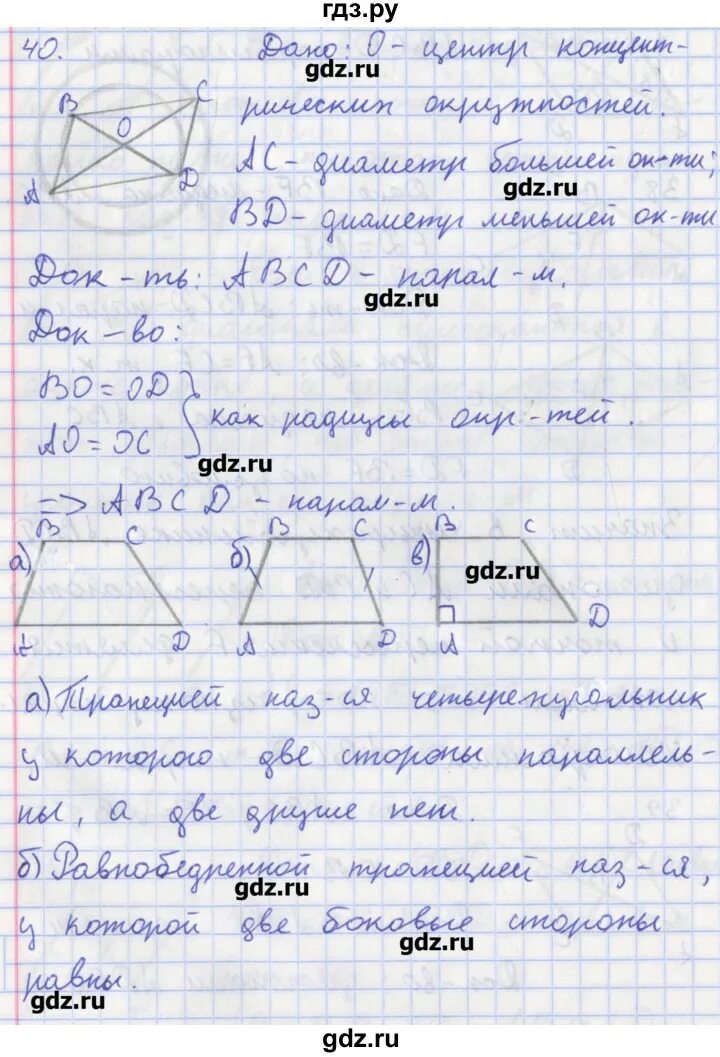 гдз.ру
40.
Дано: O - центр концент-
gdz.ru
рических окружностей.
B
C
O
A
D
AC - диаметр большей ок-ти;
gdz.ru
BD - диаметр меньшей ок-ти
Док-ть: ABCD - парал-м.
gdz.ru
Док-во:
BO = OD
AO = OC
как радиусы окр-тей.
gdz.ru
=> ABCD - парал-м.
а) B C A D
б) B C A D
в) B C A D
gdz.ru
а) Трапецией наз-ся четырехугольник
gdz.ru
у которого две стороны параллель-
ны, а две другие нет.
gdz.ru
б) Равнобедренной трапецией наз-ся,
gdz.ru
у которой две боковые стороны
gdz.ru
равны.
gdz.ru
gdz.ru